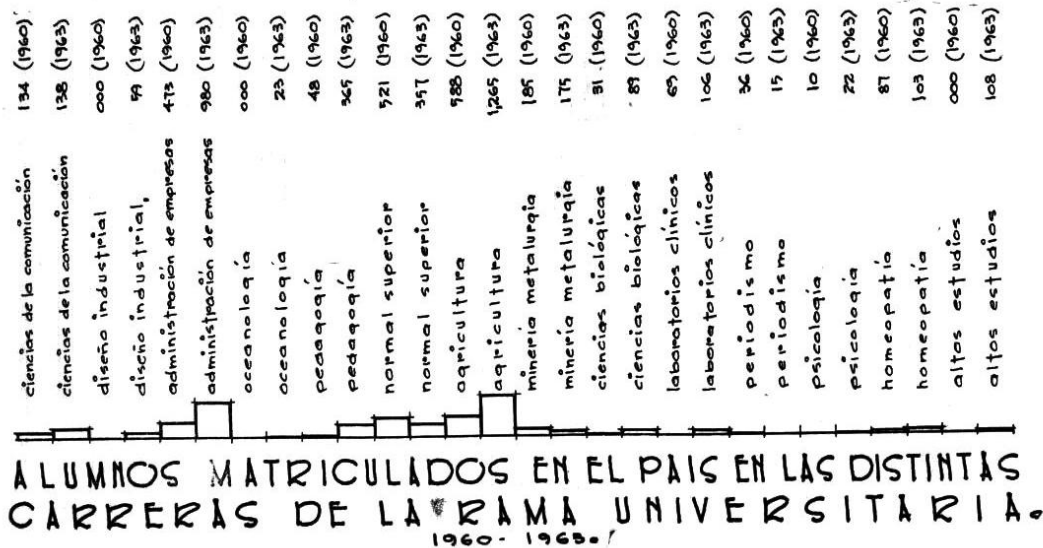 ciencias de la comunicación 134 (1960)
ciencias de la comunicación 138 (1963)
diseño industrial 000 (1960)
diseño industrial, 59 (1963)
administración de empresas 473 (1960)
administración de empresas 980 (1963)
oceanología 000 (1960)
oceanología 23 (1963)
pedagogía 48 (1960)
pedagogía 365 (1963)
normal superior 521 (1960)
normal superior 357 (1963)
agricultura 588 (1960)
agricultura 1,265 (1963)
minería metalurgia 185 (1960)
minería metalurgia 175 (1963)
ciencias biológicas 31 (1960)
ciencias biológicas 89 (1963)
laboratorios clínicos 69 (1960)
laboratorios clínicos 106 (1963)
periodismo 36 (1960)
periodismo 15 (1963)
psicología 10 (1960)
psicología 22 (1963)
homeopatía 87 (1960)
homeopatía 103 (1963)
altos estudios 000 (1960)
altos estudios 108 (1963)
ALUMNOS MATRICULADOS EN EL PAIS EN LAS DISTINTAS
CARRERAS DE LA RAMA UNIVERSITARIA.
1960-1963.